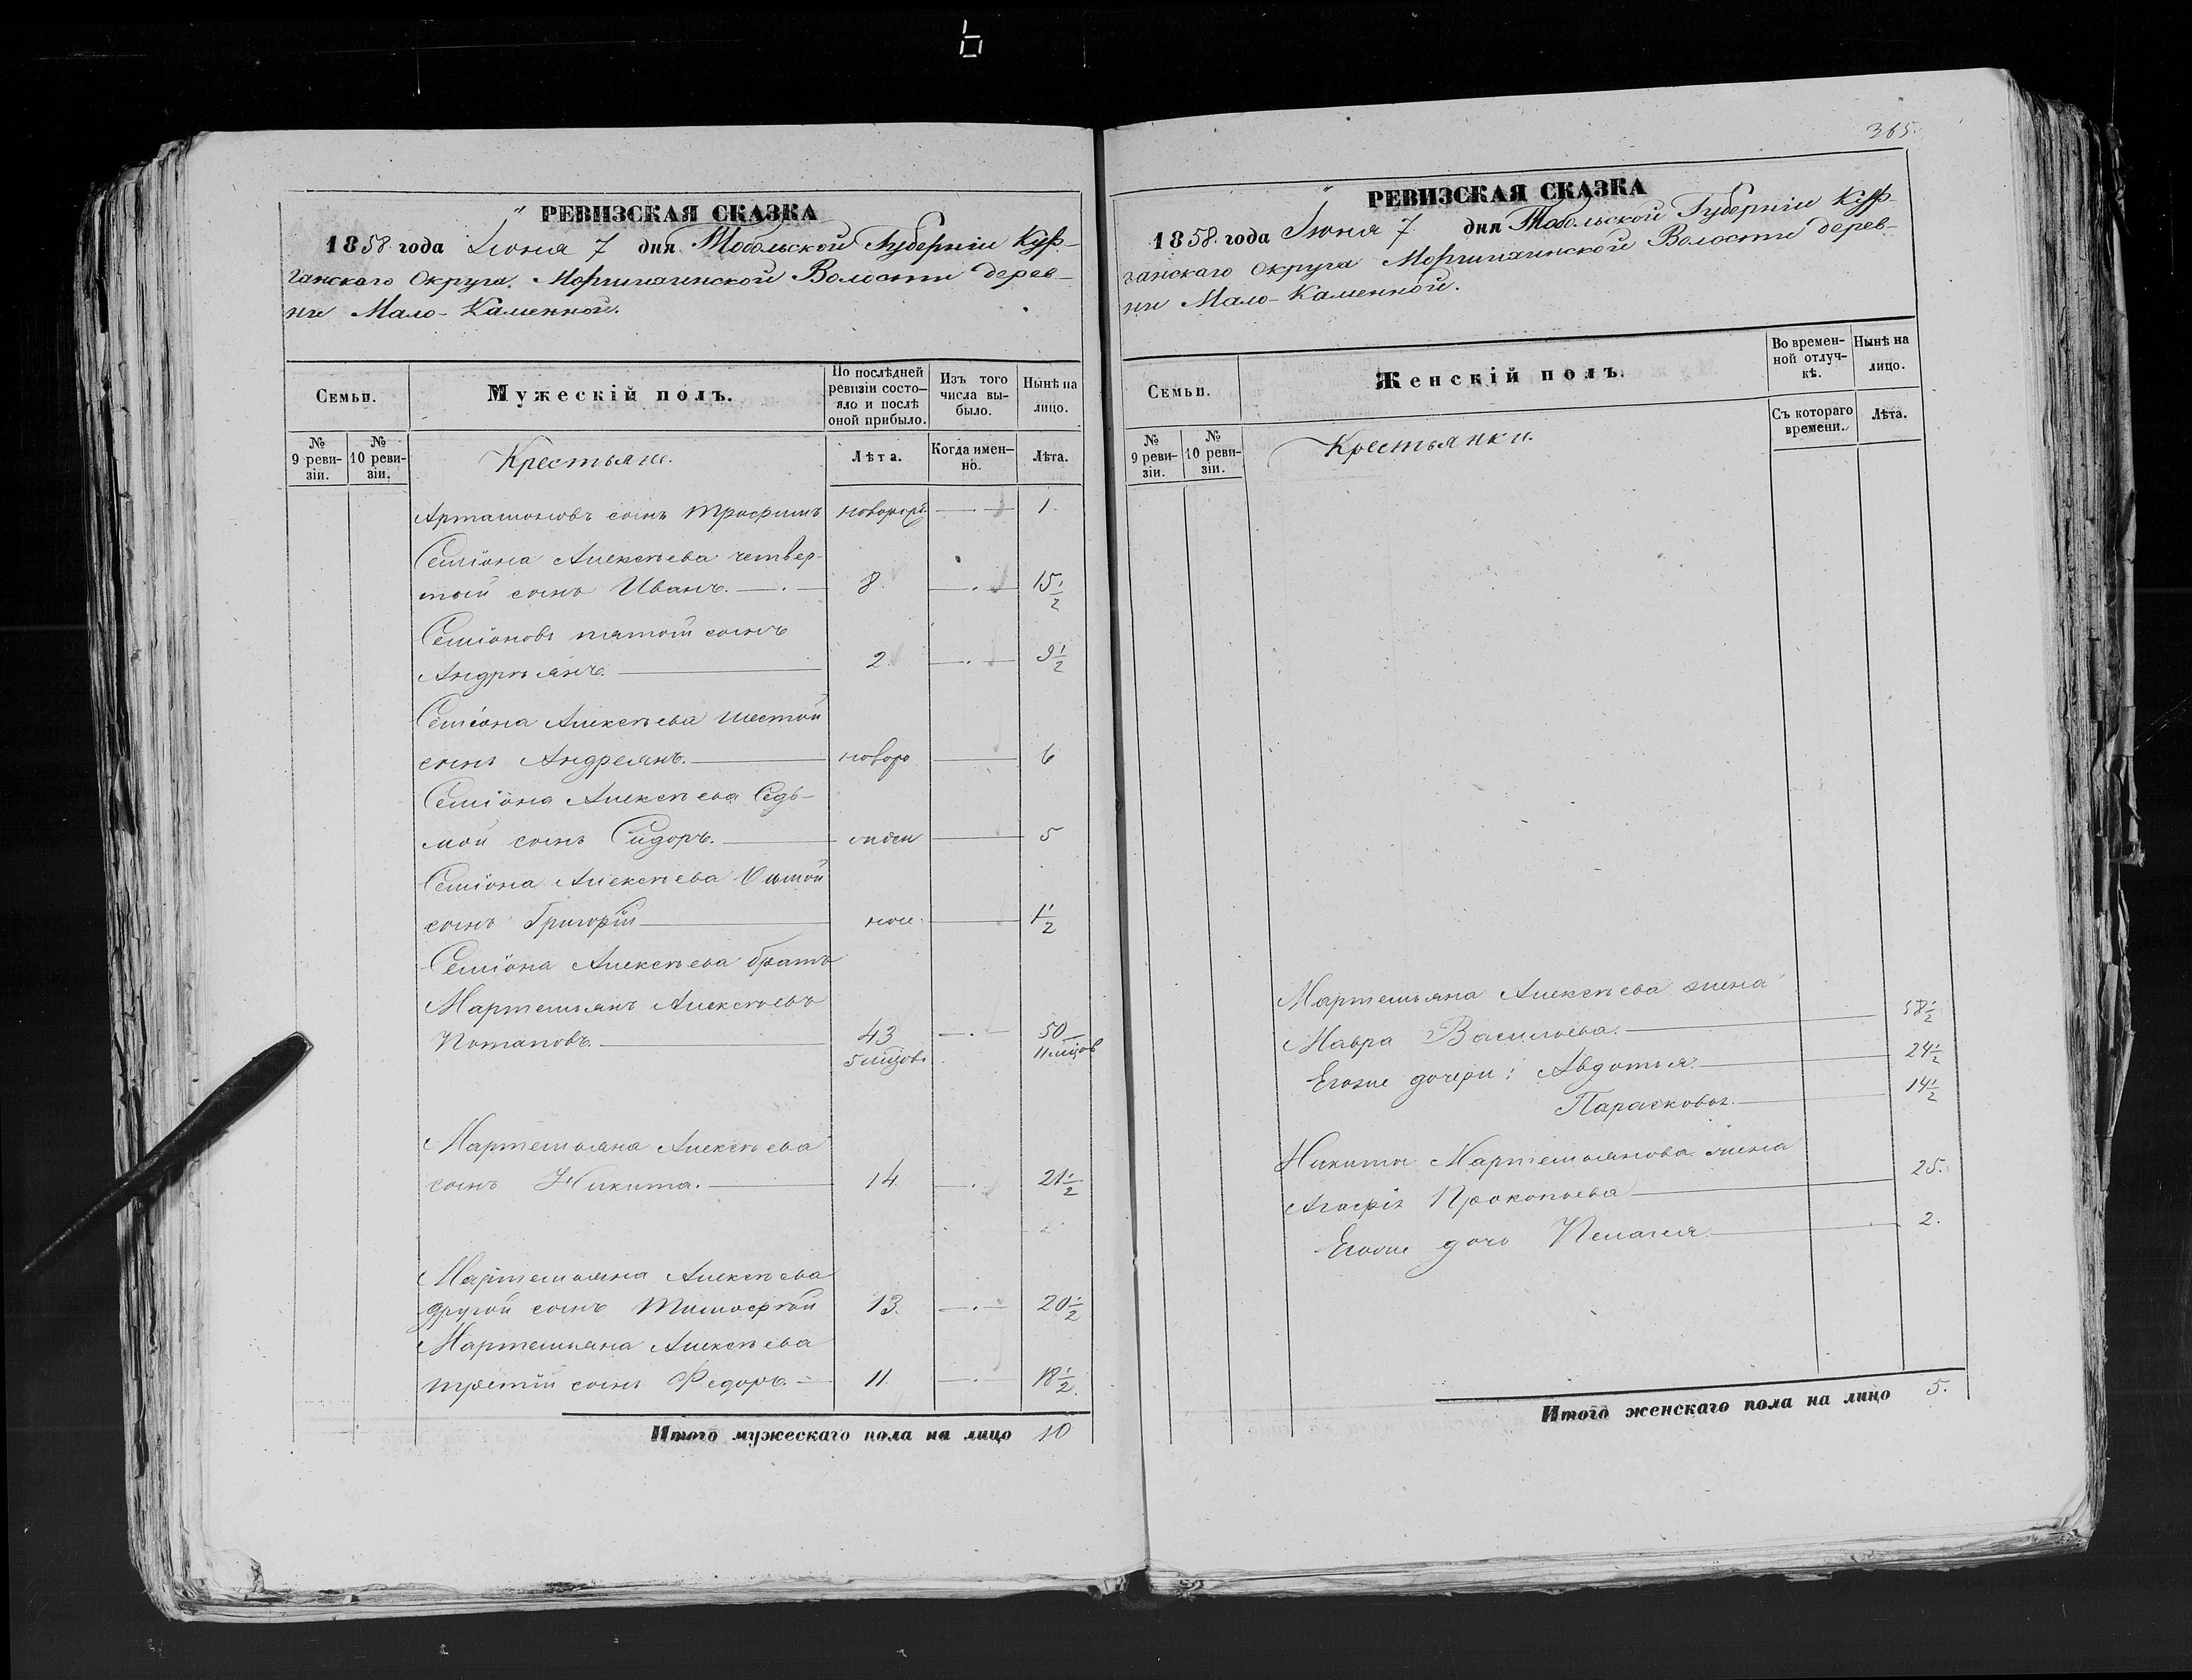 365.
РЕВИЗСКАЯ СКАЗКА
1858. года Іюня 7 дня Тобольской Губерніи Кур-
ганскаго Округа. Моршихинской Волости дерев-
ни Мало-Каменной.
Семьи.
Мужескій полъ.
По послѣдней ревизіи состо-
яло и послѣ оной прибыло.
Изъ того числа вы-
было.
Нынѣ на лицо.
№ 9 реви-
зіи.
№ 10 реви-
зіи.
Крестьяне.
Лѣта.
Когда имен-
но.
Лѣта.
Артамоновъ сынъ Трофимъ 1
Семіона Алексѣева четвер-
той сынъ Иванъ. 8 15 1/2
Семіоновъ пятой сынъ
Андрѣянъ. 2 9 1/2
Семіона Алексѣева шестой
сынъ Андреянъ. новоро 6
Семіона Алексѣева Седь-
мой сынъ Сидоръ. 5
Семіона Алексѣева
сынъ Григорій 1 1/2
Семіона Алексѣева братъ
Мартемьянъ Алексѣевъ
Потаповъ. 43 50
5 мѣцовъ 11 мѣцов
Мартемьяна Алексѣева
сынъ Никита. 14 21 1/2
Мартемьяна Алексѣева
другой сынъ Тимофѣй 13. 20 1/2
Мартемьяна Алексѣева
третій сынъ Федоръ. 11 18 1/2.
Итого мужескаго пола на лицо 10
РЕВИЗСКАЯ СКАЗКА
1858. года Іюня 7 дня Тобольской Губерніи Кур-
ганскаго Округа Моршихинской Волости дерев-
ни Мало-Каменной.
Семьи.
Женскій полъ.
Во времен-
ной отлуч-
кѣ.
Нынѣ на лицо.
№ 9 реви-
зіи.
№ 10 реви-
зіи.
Крестьянки.
Съ котораго времени.
Лѣта.
Мартемьяна Алексѣева жена
Мавра Васильева. 58 1/2
Егоже дочери: Авдотья. 24 1/2
Парасковья. 14 1/2
Никиты Мартемьянова жена
Агафія Прокопьева 25.
Егоже дочь Пелагея. 2.
Итого женскаго пола на лицо 5.